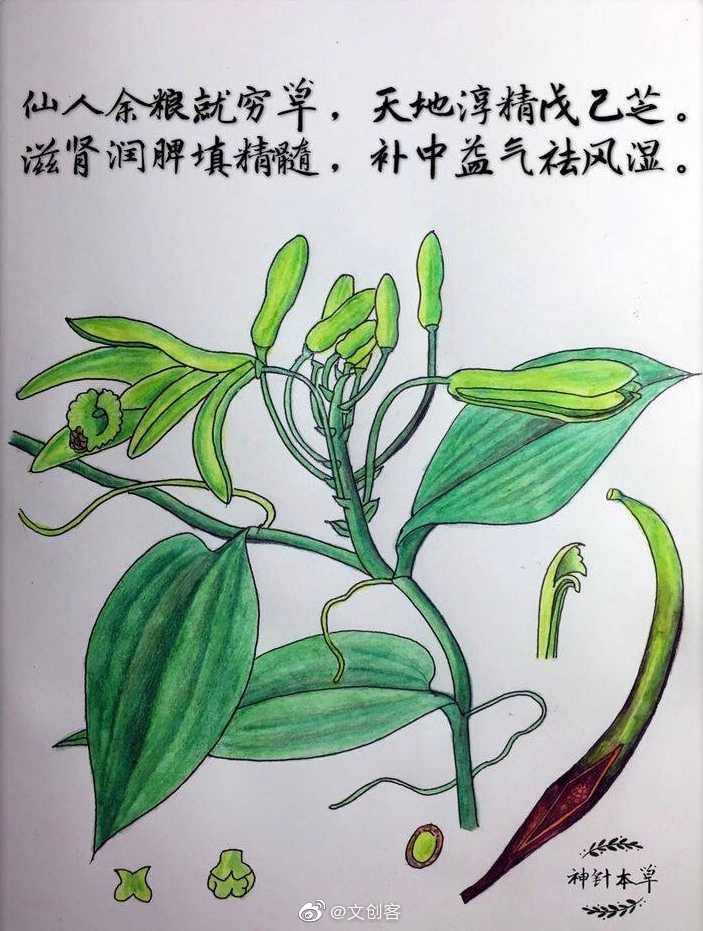 仙人余粮就穷草，天地淳精戊己芝。
滋肾润脾填精髓，补中益气祛风湿。
神针本草
@文创客